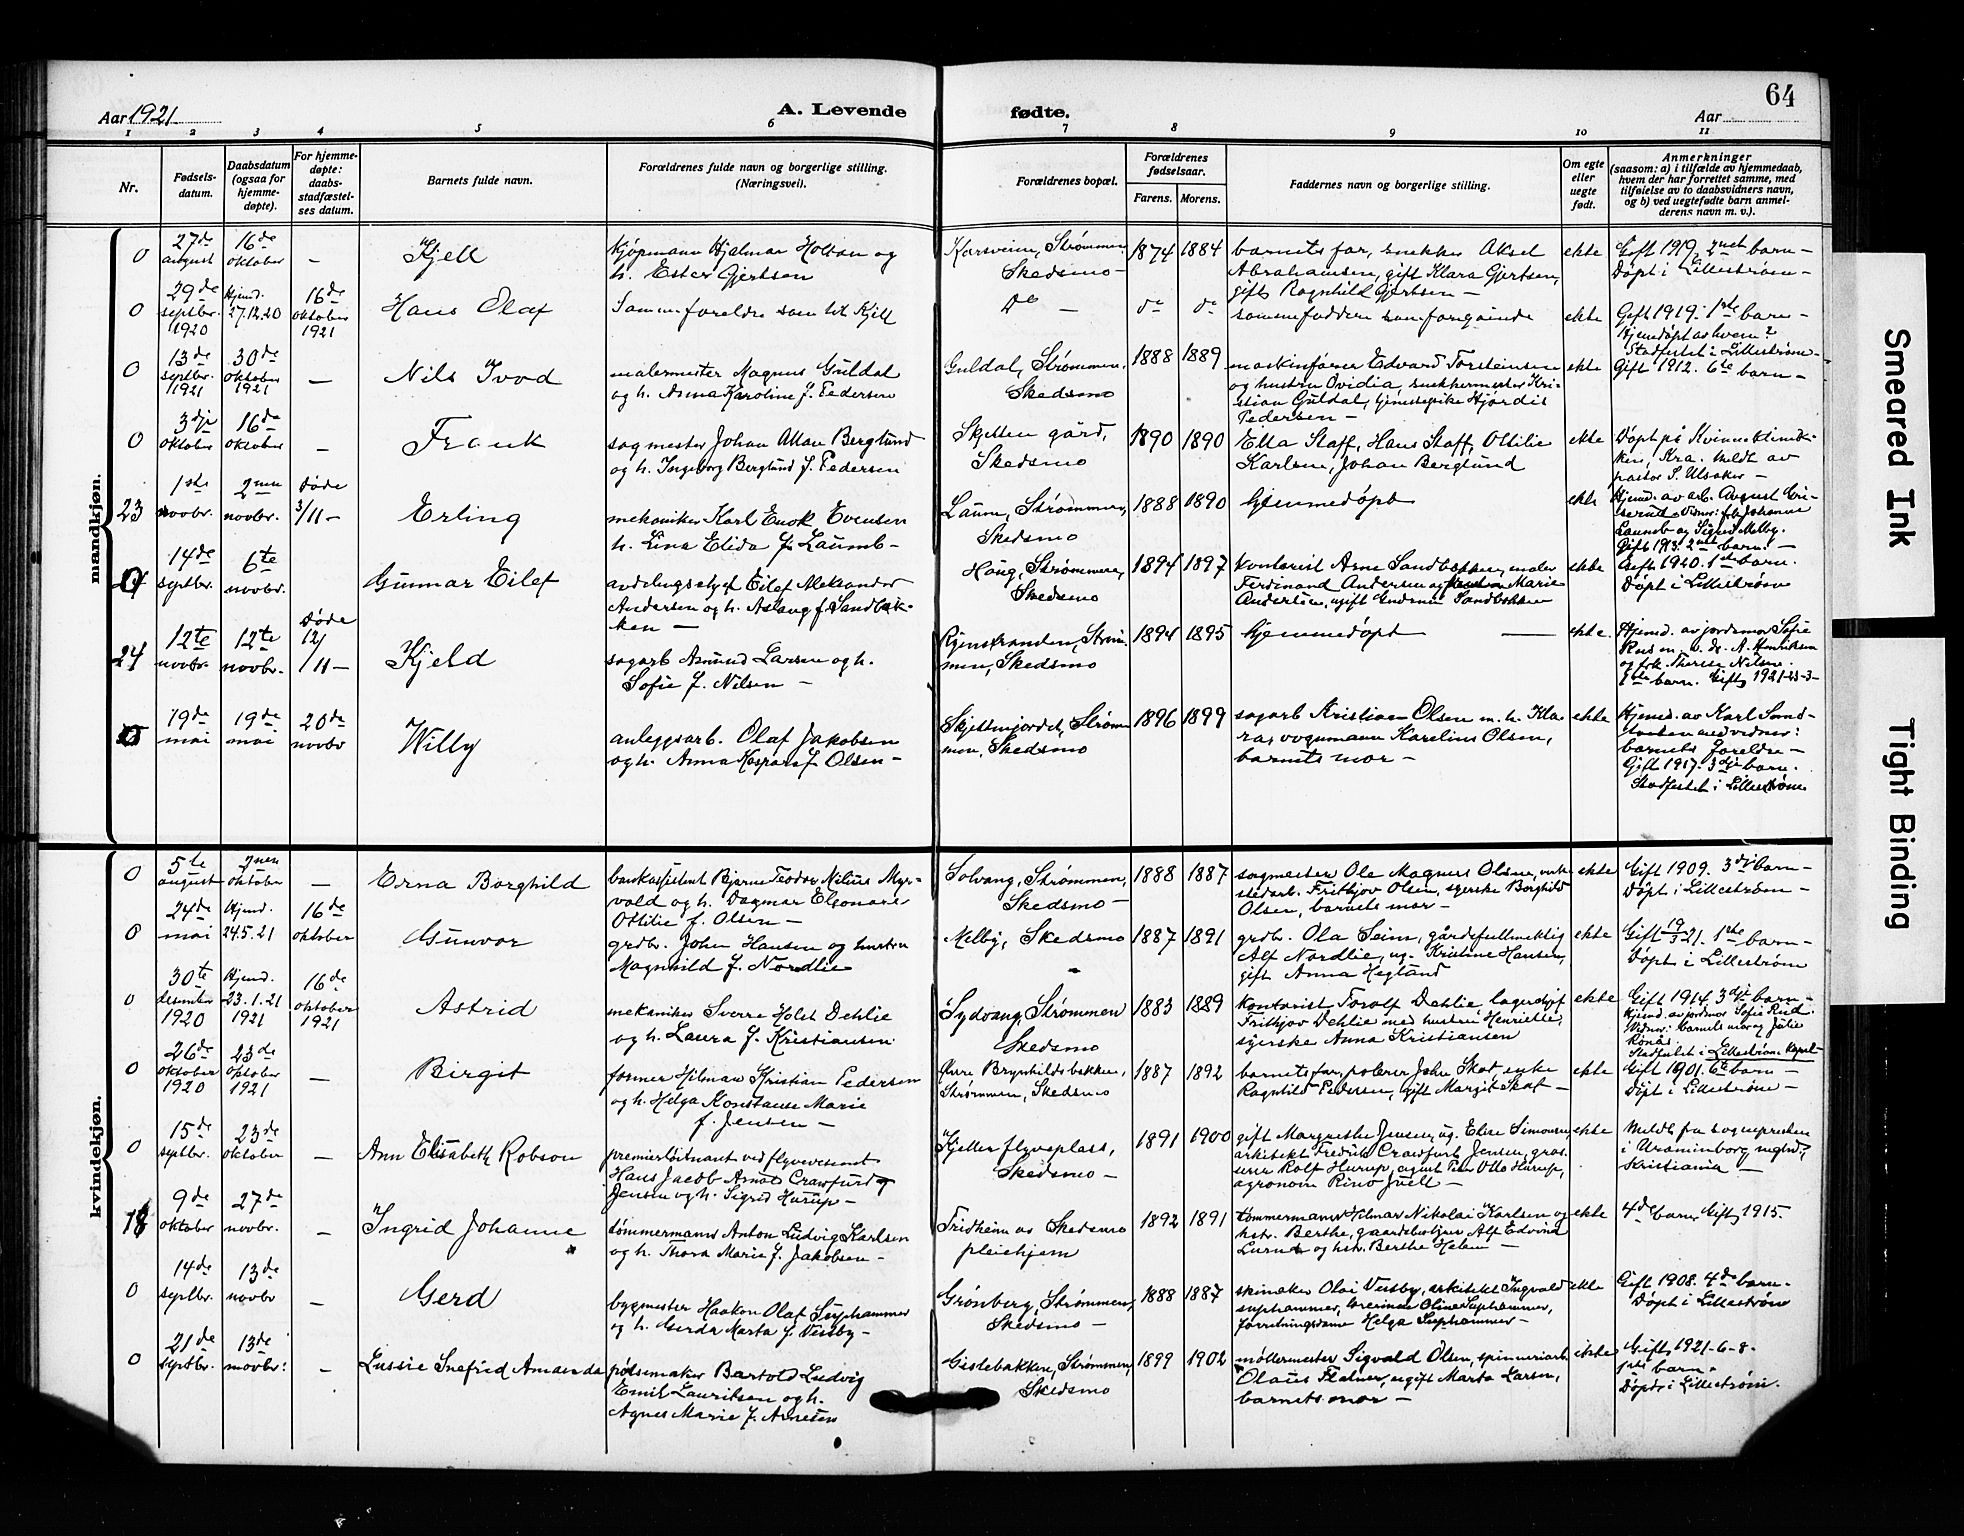 64
Aar 1921
A. Levende
fødte.
Aar
1 2 3 4 5 6 7 8 9 10 11
Nr.
Fødsels-
datum.
Daabsdatum
(ogsaa for
hjemme-
døpte).
For hjemme-
døpte:
daabs-
stadfæstel-
ses datum.
Barnets fulde navn.
Forældrenes fulde navn og borgerlige stilling.
(Næringsvei).
Forældrenes bopæl.
Forældrenes
fødselsaar.
Farens. Morens.
Faddernes navn og borgerlige stilling.
Om egte
eller
uegte
født.
Anmerkninger
(saasom: a) i tilfælde av hjemmedaab,
hvem der har forrettet samme, med
tilføielse av to daabsvidners navn,
og b) ved uegtefødte barn anmel-
derens navn m. v.).
mandkjøn.
0
27de
august
16de
oktober
–
Kjell
kjøpmann Hjalmar Holtan og
h. Ester Gjertsen
Korsveien, Strømmen
Skedsmo –
1874
1884
barnets far, snekker Aksel
Abrahamsen, gift Klara Gjertsen,
gift Ragnhild Gjertsen –
ekte
Gift 1919, 2net barn –
Døpt i Lillestrøm –
0
29de
septbr.
1920
Hjemd.
27.12.20
16de
oktober
1921
Hans Olaf
Samme foreldre som til Kjell
do –
do
do
samme faddere som foregående
ekte
Gift 1919. 1ste barn –
Hjemdøpt av hvem?
Stadfestet i Lillestrøm –
0
13de
septbr.
1921
30de
oktober
1921
–
Nils Ivod
malermester Magnus Guldal
og h. Anna Karoline f. Pedersen
Guldal, Strømmen,
Skedsmo
1888
1889
maskinfører Edvard Torsteinsen
og hustru Ovidia, snekkermester Kri-
stian Guldal, tjenestepike Hjørdis
Pedersen –
ekte
Gift 1912. 6te barn –
0
3dje
oktober
16de
oktober
–
Frank
sagmester Johan Allan Berglund
og h. Ingeborg Berglund f. Pedersen
Skjetten gård,
Skedsmo
1890
1890
Ella Staff, Hans Staff, Ottilie
Karlsen, Johan Berglund
ekte
Døpt på Kvinneklinik-
ken, Kra. meldt av
pastor S. Ulsaker –
23
1ste
novbr.
2nen
novbr.
døde
3/11 –
Erling
mekaniker Karl Enok Evensen
h. Lina Elida f. Laumb –
Laum, Strømmen,
Skedsmo
1888
1890
hjemmedøpt
ekte
Hjemd. av arb. August
Vidner: frk Johanne
Laumb og Sigurd Melby.
Gift 1913. 2net barn. –
14de
septbr.
6te
novbr.
Gunnar Eilef
avdelingschef Eilef Aleksander
Andersen og h. Aslaug f. Sandbak-
ken –
Haug, Strømmen,
Skedsmo
1894
1897
kontorist Arne Sandbakken, maler
Ferdinand Andersen og Marie
Andersen, ugift Gudrun Sandbakken
ekte
Gift 1920. 1ste barn.
Døpt i Lillestrøm
24
12te
novbr.
12te
novbr.
døde
12/
/11 –
Kjeld
sagarb Asmund Larsen og h.
Sofie f. Nilsen –
Strøm-
men, Skedsmo
1894
1895
hjemmedøpt –
ekte.
Hjemd. av jordmor Sofie
Rus m. v. dr. A. Henriksen
og frk. Therese Nilsen.
1ste barn. Gift 1921-23-3-
19de
mai
19de
mai
20de
novbr
Willy
anleggsarb. Olaf Jakobsen
og h. Anna Kaspara f Olsen –
Skjettenjordet, Strøm
men, Skedsmo
1896
1899
sagarb Kristian Olsen m. h. Kla
ra, vognmann Karelius Olsen,
barnets mor –
ekte
Hjemd. av Karl Sand-
med vidner:
barnets foreldre –
Gift 1917. 3dje barn.
Stadfestet i Lillestrøm
kvindekjøn.
0
5te
august
2nen
oktober
–
Erna Borghild
bankassistent Bjarne Teodor Nilius Myr-
vold og h. Dagmar Eleonare
Ottilie f. Olsen –
Solvang, Strømmen,
Skedsmo –
1888
1887
sagmester Ole Magnus Olsen, verk-
stedarb. Frithjov Olsen, syerske Borghild
Olsen, barnets mor –
ekte
Gift 1909. 3dje barn –
Døpt i Lillestrøm –
0
24de
mai
Hjemd.
24.5.21
16de
oktober
Gunvor
grdbr. John Hansen og hustru
Magnhild f. Nordlie
Melby, Skedsmo
1887
1891
grdbr. Ola Seim, gårdsfullmektig
Alf Nordlie, ug. Kristine Hansen,
gift Anna Hegland
ekte
Gift 19/3 21. 1ste barn –
Døpt i Lillestrøm
0
30te
desember
1920
Hjemd.
23.1.21
1921
16de
oktober
1921
Astrid
mekaniker Sverre Holst Dehlie
og h. Laura f. Kristiansen
Sydvang, Strømmen
Skedsmo
1883
1889
kontorist Torolf Dehlie, lagerchef
Frithjov Dehlie med hustru Henriette,
syerske Anna Kristiansen
ekte
Gift 1914. 3dje barn –
Hjemd. av jordmor Sofie Rud.
Vidner: barnets mor og Julie
Rønås.
Stadfestet i Lillestrøm Kapel –
0
26de
oktober
1920
23de
oktober
1921
–
Birgit
former Hilmar Kristian Pedersen
og h. Helga Konstanse Marie
f. Jensen –
Brynhildsbakken,
Strømmen, Skedsmo
1887
1892
barnets far, polerer John Skat, enke
Ragnhild Pedersen, gift Margit Skat –
ekte
Gift 1901. 6te barn –
Døpt i Lillestrøm –
0
15de
septbr.
23de
oktober
–
Ann Elisabeth Robson
premierløitnant ved flyvevesenet
Hans Jacob Arnot Crawfurd
Jensen og h. Sigrid Hurup –
Kjeller flyveplass,
Skedsmo –
1891
1900
gift Margrethe Jensen, ug. Elise Simonsen,
arkitekt Fredrik Crawfurt Jensen, gros-
serer Rolf Hurup, agent Per Otto Hurup,
agronom Rino Juell –
ekte
Meldt fra sognepresten
i Uranienborg meghd.,
Kristiania –
18
9de
oktober
27de
novbr.
–
Ingrid Johanne
tømmermann Anton Ludvig Karlsen
og h. Thora Marie f. Jakobsen –
Fridheim av Skedsmo
pleiehjem
1892
1891
tømmermann Hilmar Nikolai Karlsen og
hstr. Berthe, gaardsbestyrer Alf Edvind
Lund og hstr. Berthe Helene –
ekte
4de barn Gift 1915.
0
14de
septbr.
13de
novbr
–
Gerd
bygmester Haakon Olaf Syphammer
og h. Gerda Marta f. Vessby –
Grønberg, Strømmen,
Skedsmo –
1888
1887
skinaker Olai Vessby, arkitekt Ingvald
Suphammer, Oline Suphammer,
forretningsdame Helga Suphammer –
ekte
Gift 1908. 4de barn –
Døpt i Lillestrøm
0
21de
septbr.
13de
novbr.
–
Lussie Snefrid Amanda
pølsemaker Bartold Ludvig
Emil Lauritsen og h.
Agnes Marie f. Arnesen
Gistebakken, Strømmen,
Skedsmo
1899
1902
møllermester Sigvald Olsen, spinneriarb
Olaus Flatner, ugift Marta Larsen,
barnets mor –
ekte
Gift, 1921-6-8-
1ste barn –
Døpt i Lillestrøm.
Smeared Ink
Tight Binding